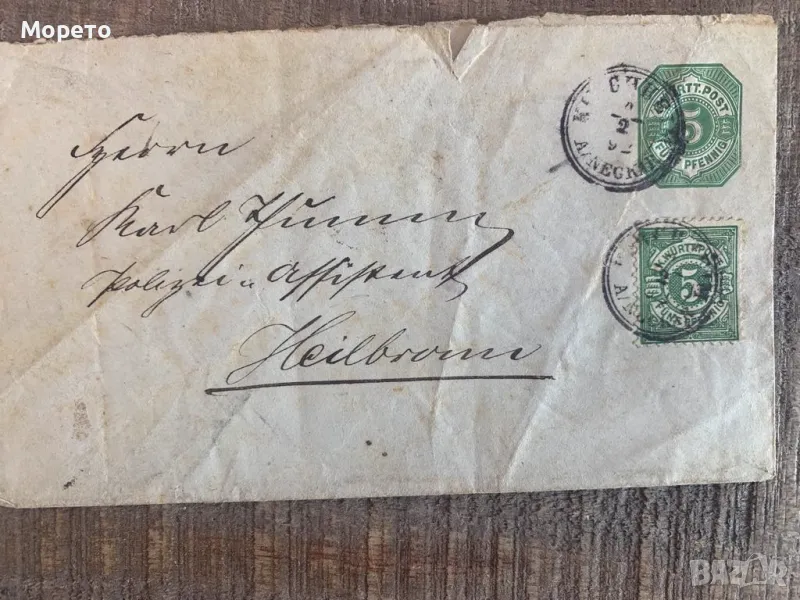 Морето
K. WÜRTT. POST
5
FÜNF PFENNIG
2
A/NECKAR
Herrn
Karl Thumm
Polizei Assistent
Heilbronn
K. WÜRTT. POST
5
FÜNF PFENNIG
BAZAR